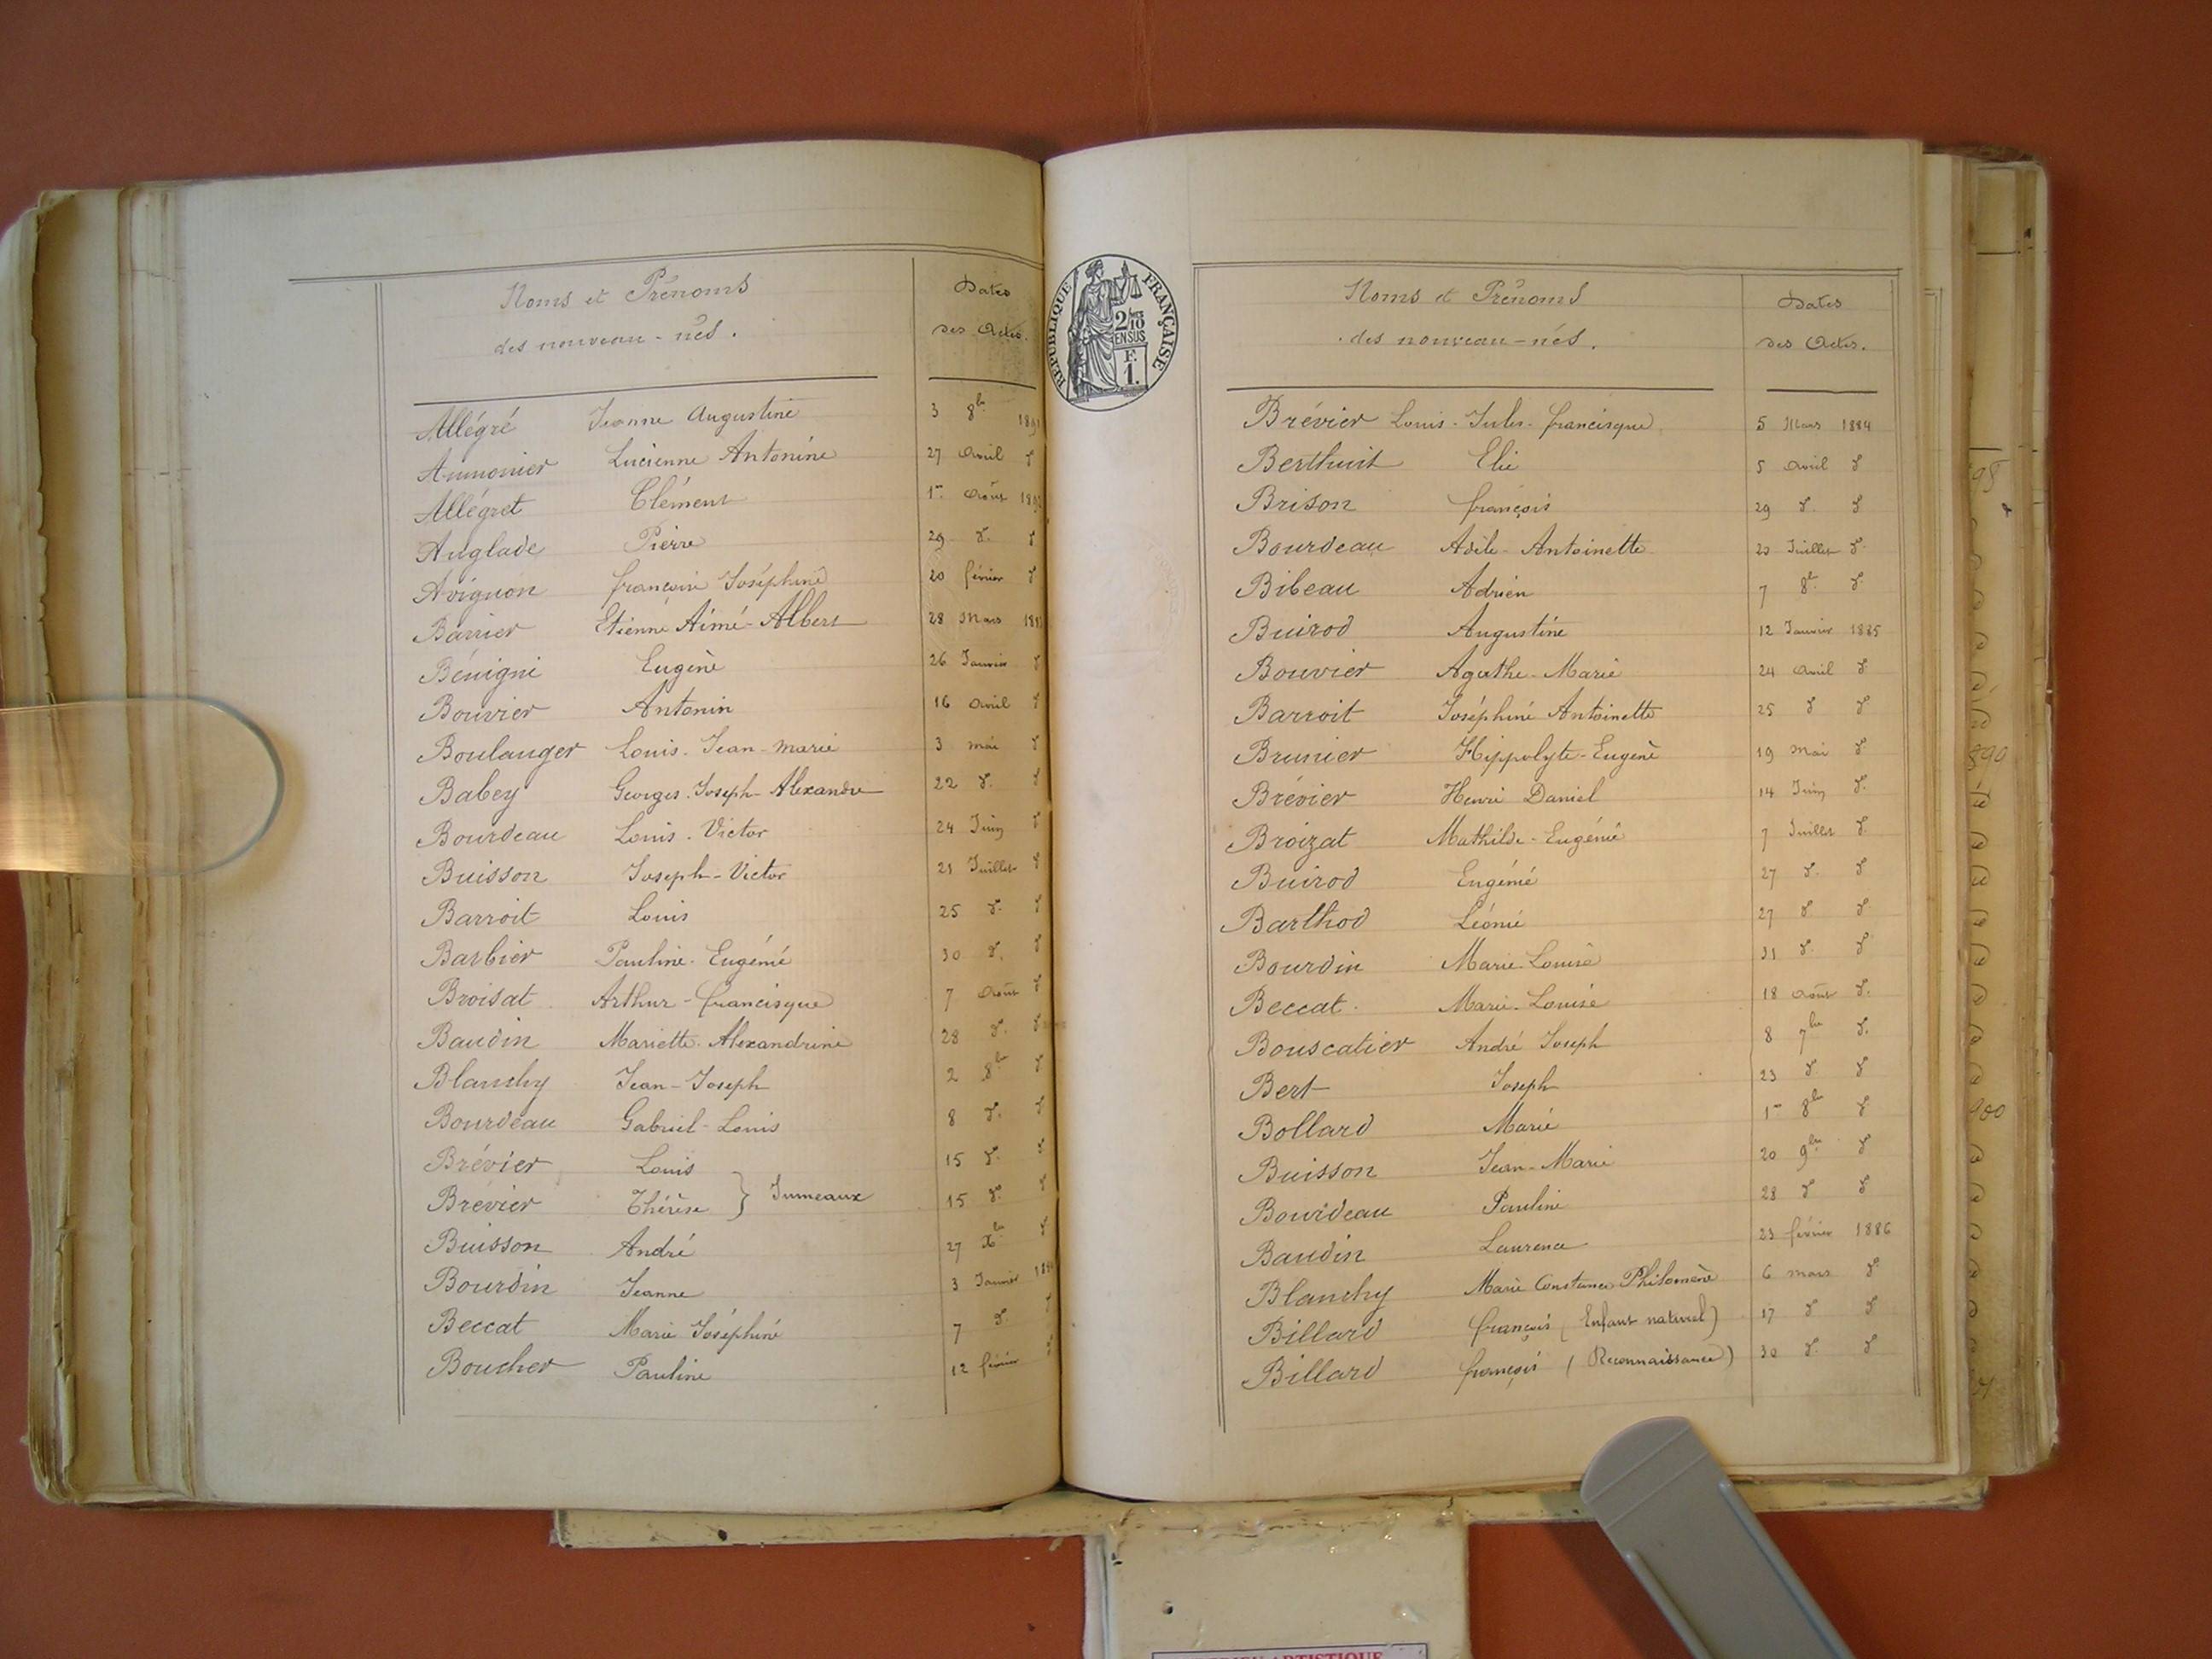 Noms et Prénoms
des nouveau-nés.
Dates
des Actes.
Allégré Jeanne Augustine 3 8bre
Aumonier Lucienne Antonine 27 Avril d°
Allégret Clément 1er Août
Anglade Pierre 29 d° d°
Avignon françoise Joséphine 20 février d°
Barrier Etienne Aimé-Albert 28 Mars
Bénigni Eugène 26 Janvier d°
Bouvier Antonin 16 Avril d°
Boulanger Louis-Jean-Marie 3 mai d°
Babey Georges-Joseph-Alexandre 22 d° d°
Bourdeau Louis-Victor 24 Juin d°
Buisson Joseph-Victor 21 Juillet d°
Barroit Louis 25 d° d°
Barbier Pauline-Eugénie 30 d° d°
Broisat Arthur-francisque 7 Août d°
Baudin Mariette-Alexandrine 28 d° d°
Blanchy Jean-Joseph 2 8bre d°
Bourdeau Gabriel-Louis 8 d° d°
Brévier Louis 15 d° d°
Brévier Thérèse } Jumeaux 15 d° d°
Buisson André 27 Xbre d°
Bourdin Jeanne 3 Janvier
Beccat Marie Joséphine 7 d°
Boucher Pauline 12 février
REPUBLIQUE FRANÇAISE
2/10
EN SUS
F.
1.
Noms et Prénoms
des nouveau-nés.
Dates
des Actes.
Brévier Louis-Jules-francisque 5 Mars 1884
Berthuit Elie 5 Avril d°
Brison françois 29 d° d°
Bourdeau Adèle-Antoinette 23 Juillet d°
Bibeau Adrien 7 8bre d°
Buirod Augustine 12 Janvier 1885
Bouvier Agathe-Marie 24 Avril d°
Barroit Joséphine Antoinette 25 d° d°
Brunier Hippolyte-Eugène 19 Mai d°
Brévier Henri Daniel 14 Juin d°
Broizat Mathilde-Eugénie 7 Juillet d°
Buirod Eugénie 27 d° d°
Barthod Léonie 27 d° d°
Bourdin Marie-Louise 31 d° d°
Beccat Marie-Louise 18 Août d°
Bouscatier André Joseph 8 7bre d°
Bert Joseph 23 d° d°
Bollard Marie 1er 8bre d°
Buisson Jean-Marie 20 9bre d°
Bourdeau Pauline 28 d° d°
Baudin Laurence 23 février 1886
Blanchy Marie Constance Philomène 6 mars d°
Billard françois (Enfant naturel) 17 d° d°
Billard françois (Reconnaissance) 30 d° d°
890
900
ARTISTIQUE